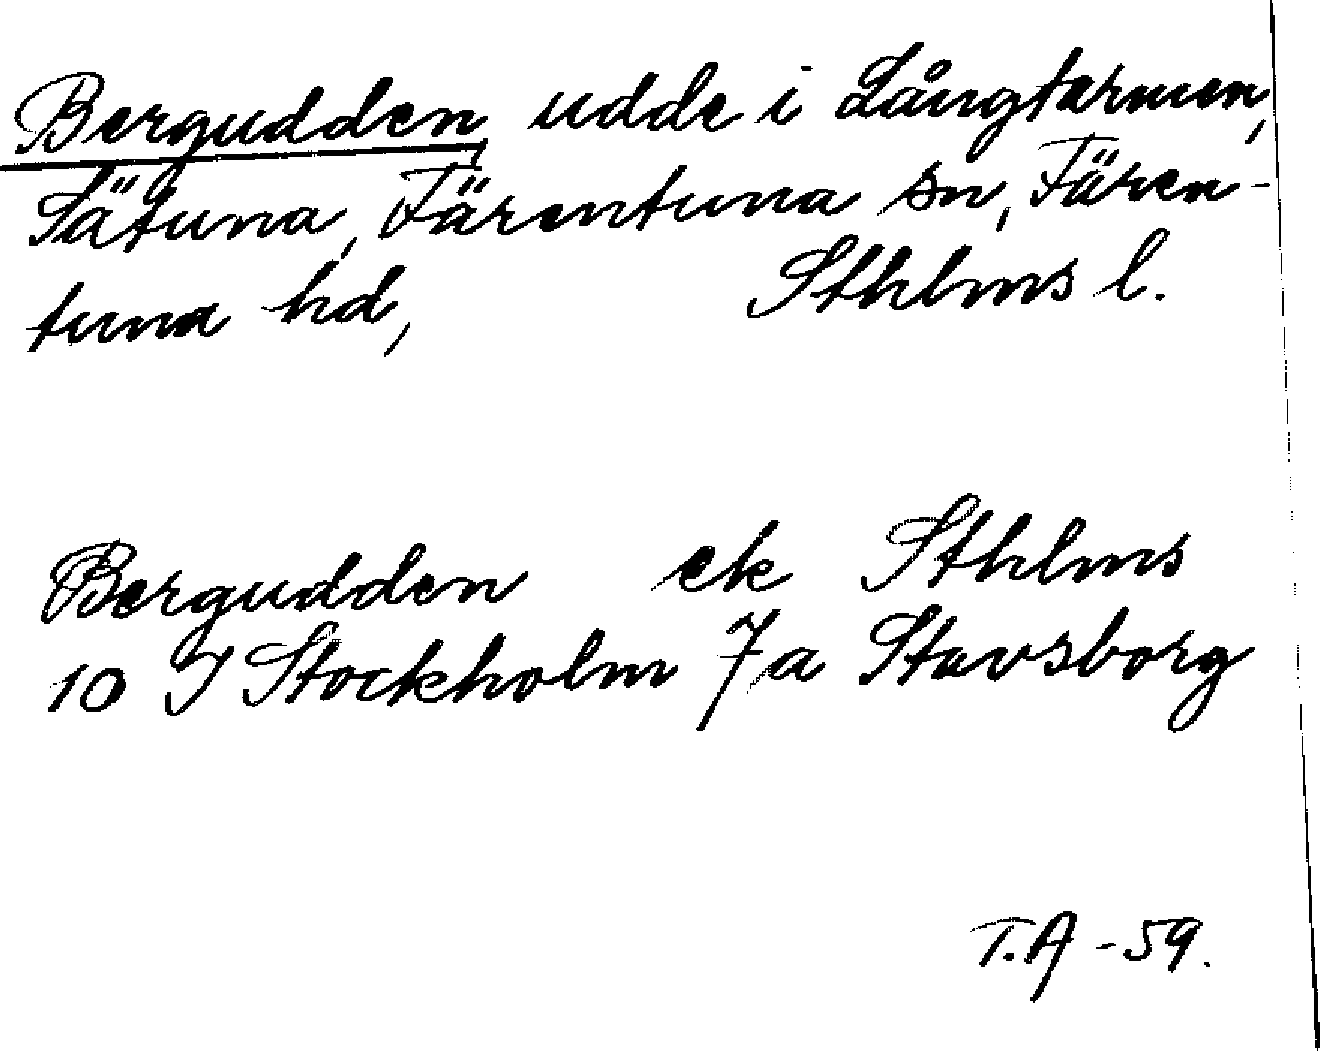 Bergudden, udde i Långtarmen,
Sätuna, Färentuna sn, Fären-
tuna hd, Sthlms l.
Bergudden ek Sthlms
10 I Stockholm 7a Stavsborg
T.A -59.